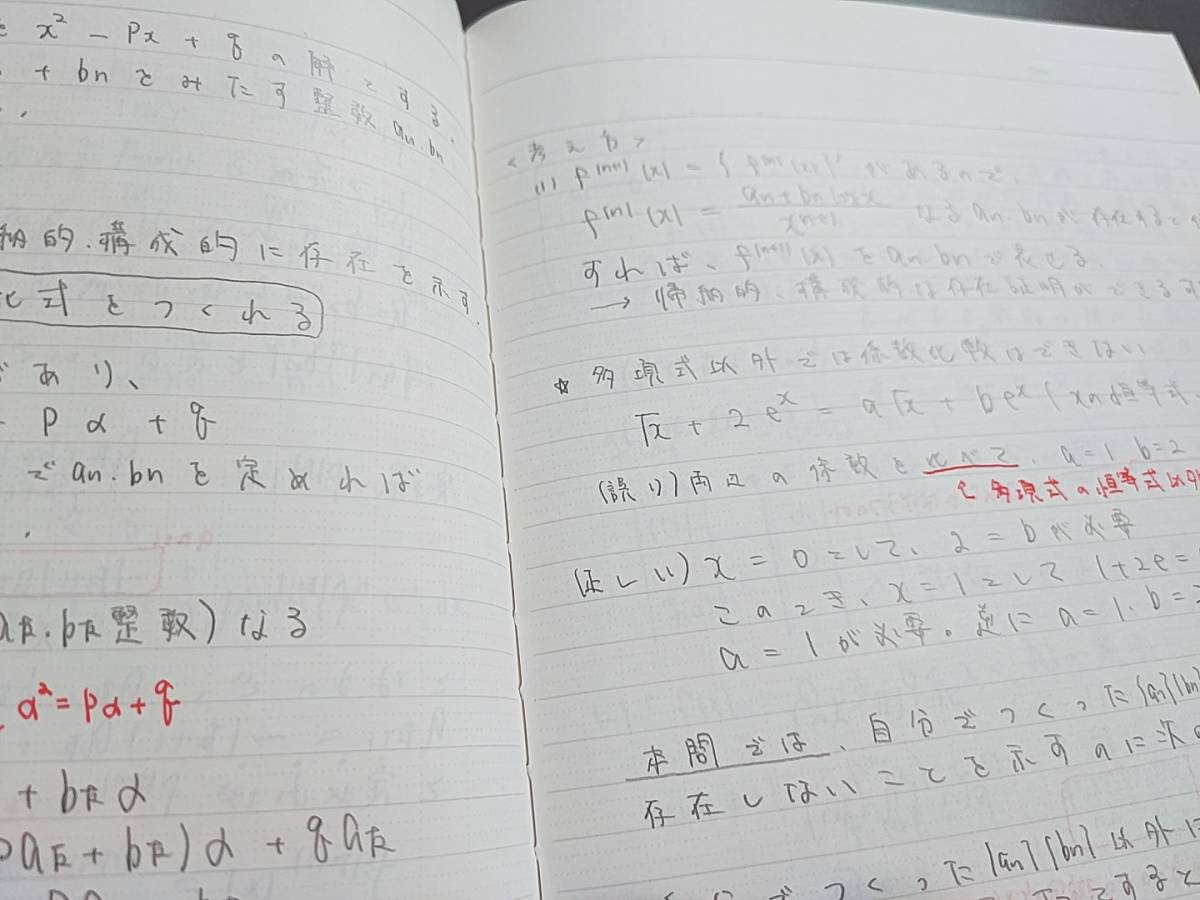 x² - Px + q の解とする.
+ bn をみたす整数 an.bn
納的.構成的に存在を示す.
化式をつくれる
あり、
P α + q
で an.bn を定めれば
ak.bk 整数) なる
α² = Pα + q
+ bk α
ak + bk ) α + q ak
<考え方>
(1) f⁽ⁿ⁺¹⁾(x) = { f⁽ⁿ⁾(x) }' があるので、
f⁽ⁿ⁾(x) = an + bn log x / xⁿ⁺¹ なる an.bn が存在すると
すれば、f⁽ⁿ⁺¹⁾(x) を an.bn で表せる.
→ 帰納的、構成的な存在証明ができる
☆ 多項式以外では係数比較はできない
√x + 2eˣ = a√x + beˣ (xの恒等式
(誤り) 両辺の係数を比べて、a = 1, b = 2
多項式の恒等式以外
(正しい) x = 0 として、2 = b が必要
このとき、x = 1 として 1+2e =
a = 1 が必要。逆に a = 1. b =
本問では、自分でつくった {an} {bn}
存在しないことを示すのに次の
つくった {an} {bn} 以外に